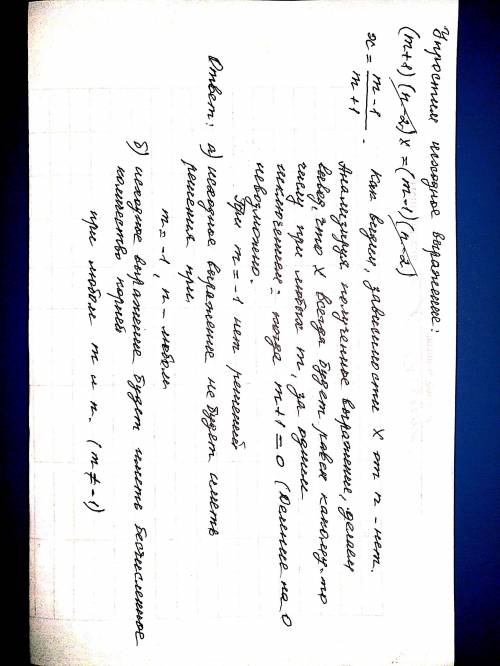 Упростим исходное выражение:
(m+1)(n-2)x=(m-1)(n-2)
x = m-1 / m+1 . Как видим, зависимости X от n - нет.
Анализируя полученное выражение, делаем
вывод, что X всегда будет равен какому-то
числу при любых m, за одним
исключением: когда m+1=0 (Деление на 0
невозможно.
При m=-1 нет решений
Ответ: а) исходное выражение не будет иметь
решения при
m=-1, n - любом
б) исходное выражение будет иметь бесчисленное
количество корней
при любом m и n. (m≠-1)